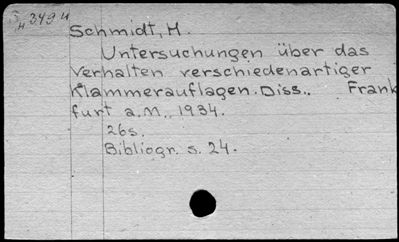 Schmidt, H.
Untersuchungen über das
Verhalten verschiedenartiger
Klammerauflagen. Diss.. Frank
furt a.M., 1934.
26s.
Bibliogr. s. 24.